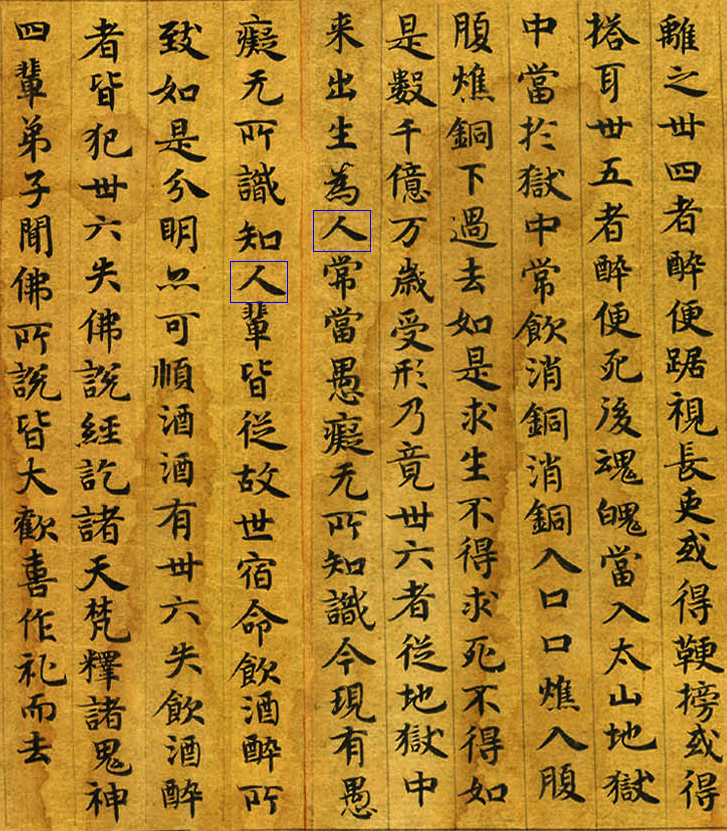 離之卅四者醉便踞視長吏或得鞕搒或得
搭耳卅五者醉便死後魂魄當入太山地獄
中當於獄中常飲消銅消銅入口口燋入腹
腹燋銅下過去如是求生不得求死不得如
是數千億万歲受形乃竟卅六者從地獄中
来出生為人常當愚癡无所知識今現有愚
癡无所識知人輩皆從故世宿命飲酒醉所
致如是分明亦可順酒酒有卅六失飲酒醉
者皆犯卅六失佛說經訖諸天梵釋諸鬼神
四輩弟子聞佛所說皆大歡喜作礼而去